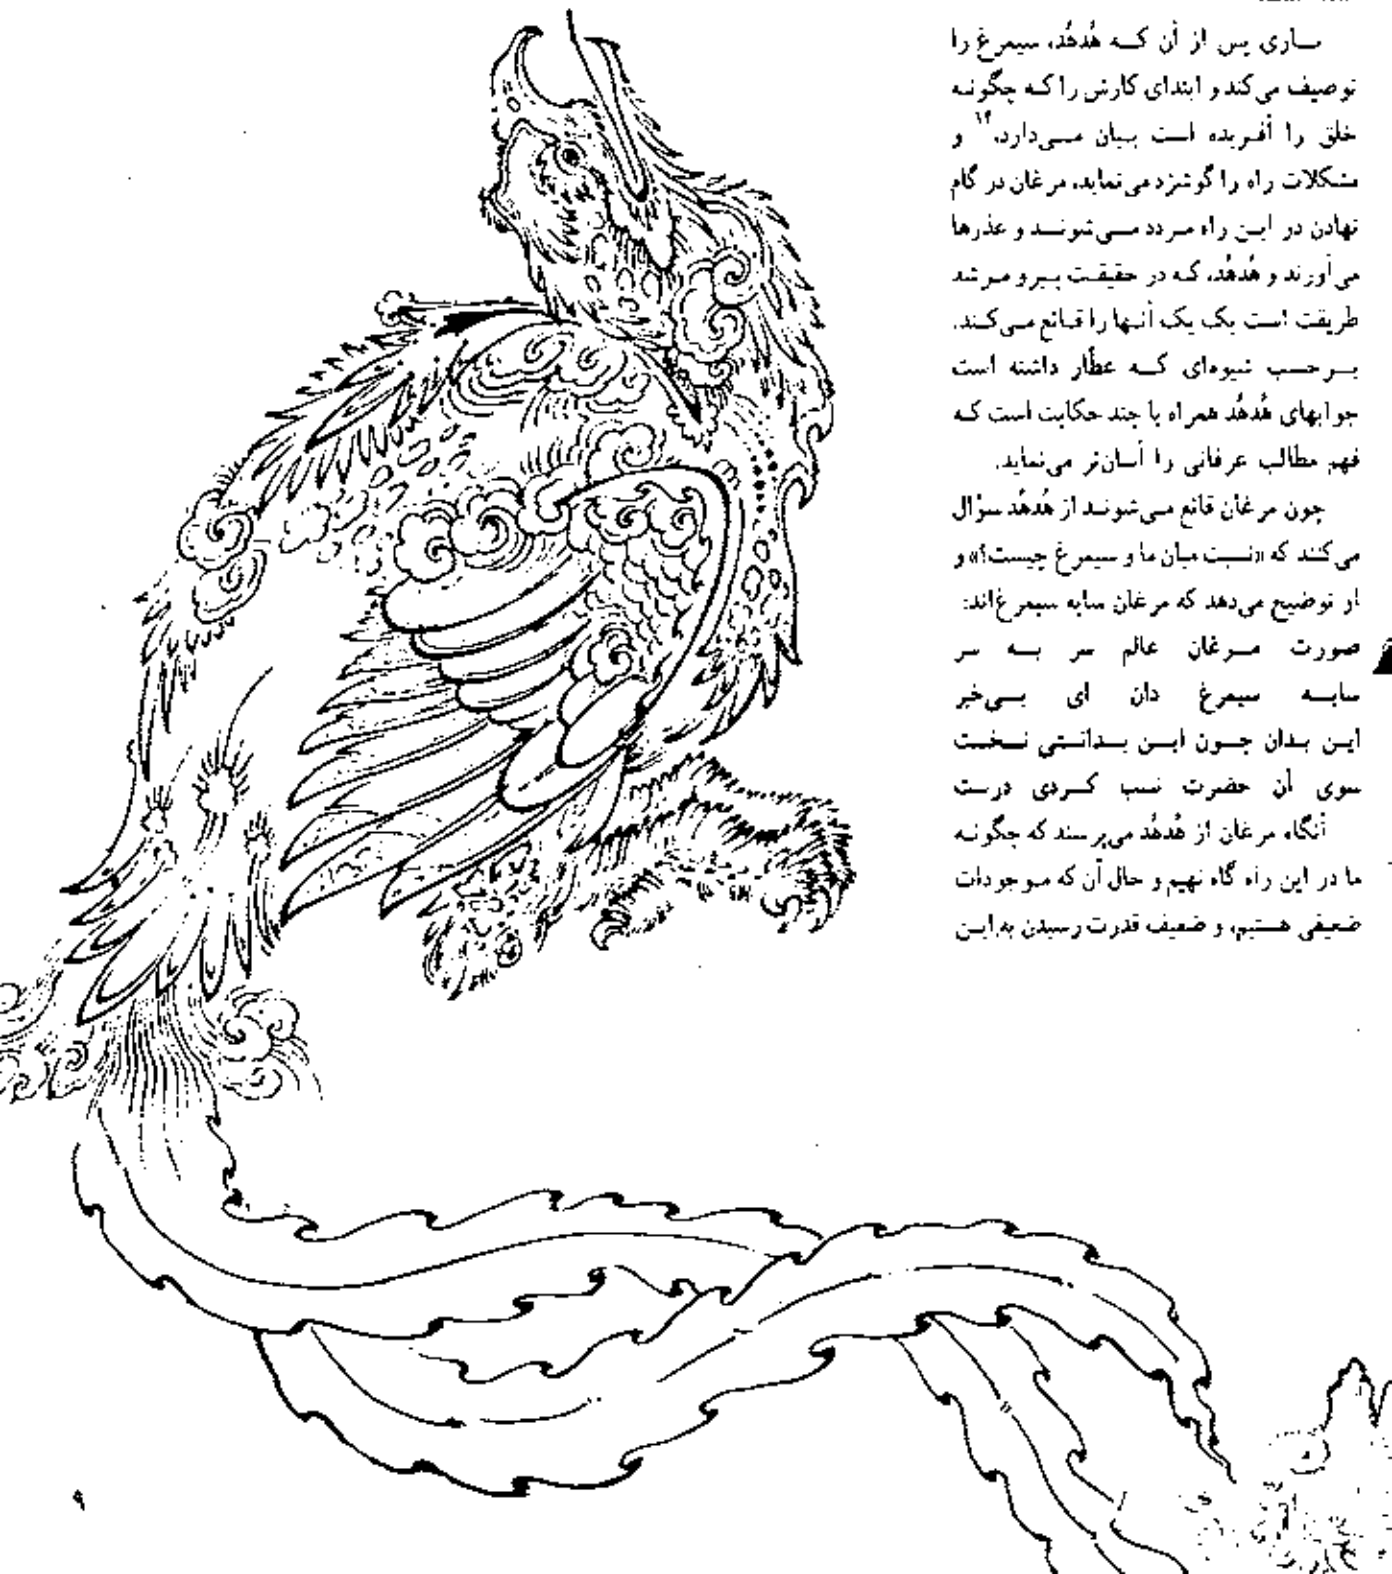 ساری پس از آن که هُدهُد، سیمرغ را
توصیف می‌کند و ابتدای کارش را که چگونه
خلق را آفریده است بیان می‌دارد،۱۴ و
مشکلات راه را گوشزد می‌نماید، مرغان در گام
نهادن در این راه مردد می‌شوند و عذرها
می‌آورند و هُدهُد، که در حقیقت پیر و مرشد
طریقت است یک یک آنها را قانع می‌کند.
برحسب شیوه‌ای که عطّار داشته است
جوابهای هُدهُد همراه با چند حکایت است که
فهم مطالب عرفانی را آسان‌تر می‌نماید.
چون مرغان قانع می‌شوند از هُدهُد سؤال
می‌کنند که «نسبت میان ما و سیمرغ چیست؟» و
او توضیح می‌دهد که مرغان سایه سیمرغ‌اند:
صورت مرغان عالم سر به سر
سایه سیمرغ دان ای بی‌خبر
این بدان چون این بدانستی نخست
سوی آن حضرت نسب کردی درست
آنگاه مرغان از هُدهُد می‌پرسند که چگونه
ما در این راه گاه نهیم و حال آن که موجودات
ضعیفی هستیم، و ضعیف قدرت رسیدن به این
۹